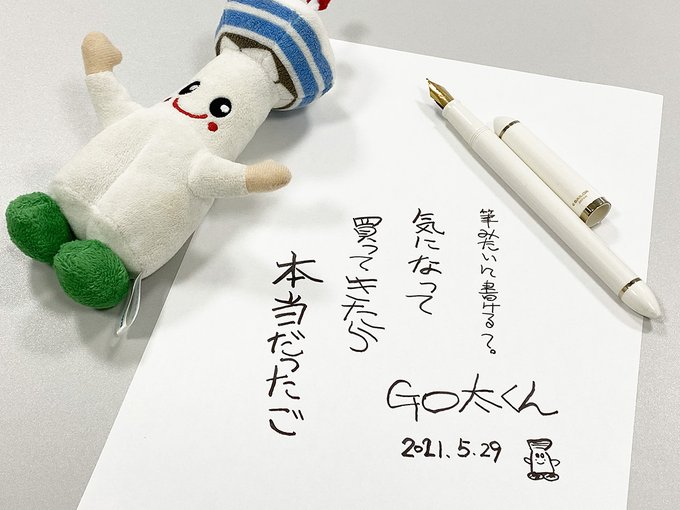 筆みたいに書けるって。
気になって
買ってきたら
本当だったご
GO太くん
2021.5.29